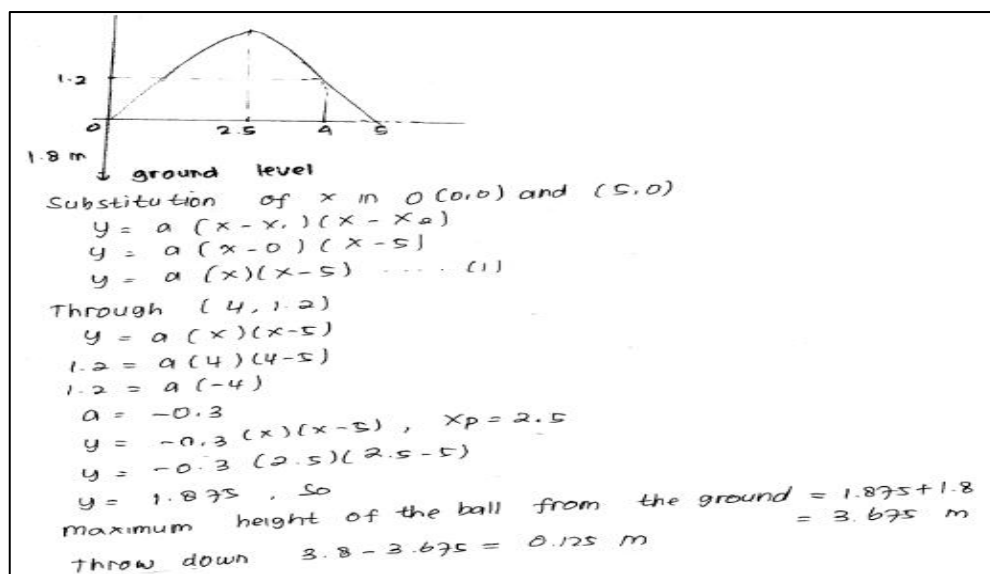 1.2
0 2.5 4 5
1.8 m
ground level
Substitution of x in O(0,0) and (5,0)
y = a (x-x₁)(x-x₂)
y = a (x-0)(x-5)
y = a (x)(x-5) .... (1)
Through (4, 1.2)
y = a (x)(x-5)
1.2 = a(4)(4-5)
1.2 = a(-4)
a = -0.3
y = -0.3 (x)(x-5), xp = 2.5
y = -0.3 (2.5)(2.5-5)
y = 1.875, So
maximum height of the ball from the ground = 1.875+1.8
= 3.675 m
Throw down 3.8-3.675 = 0.125 m